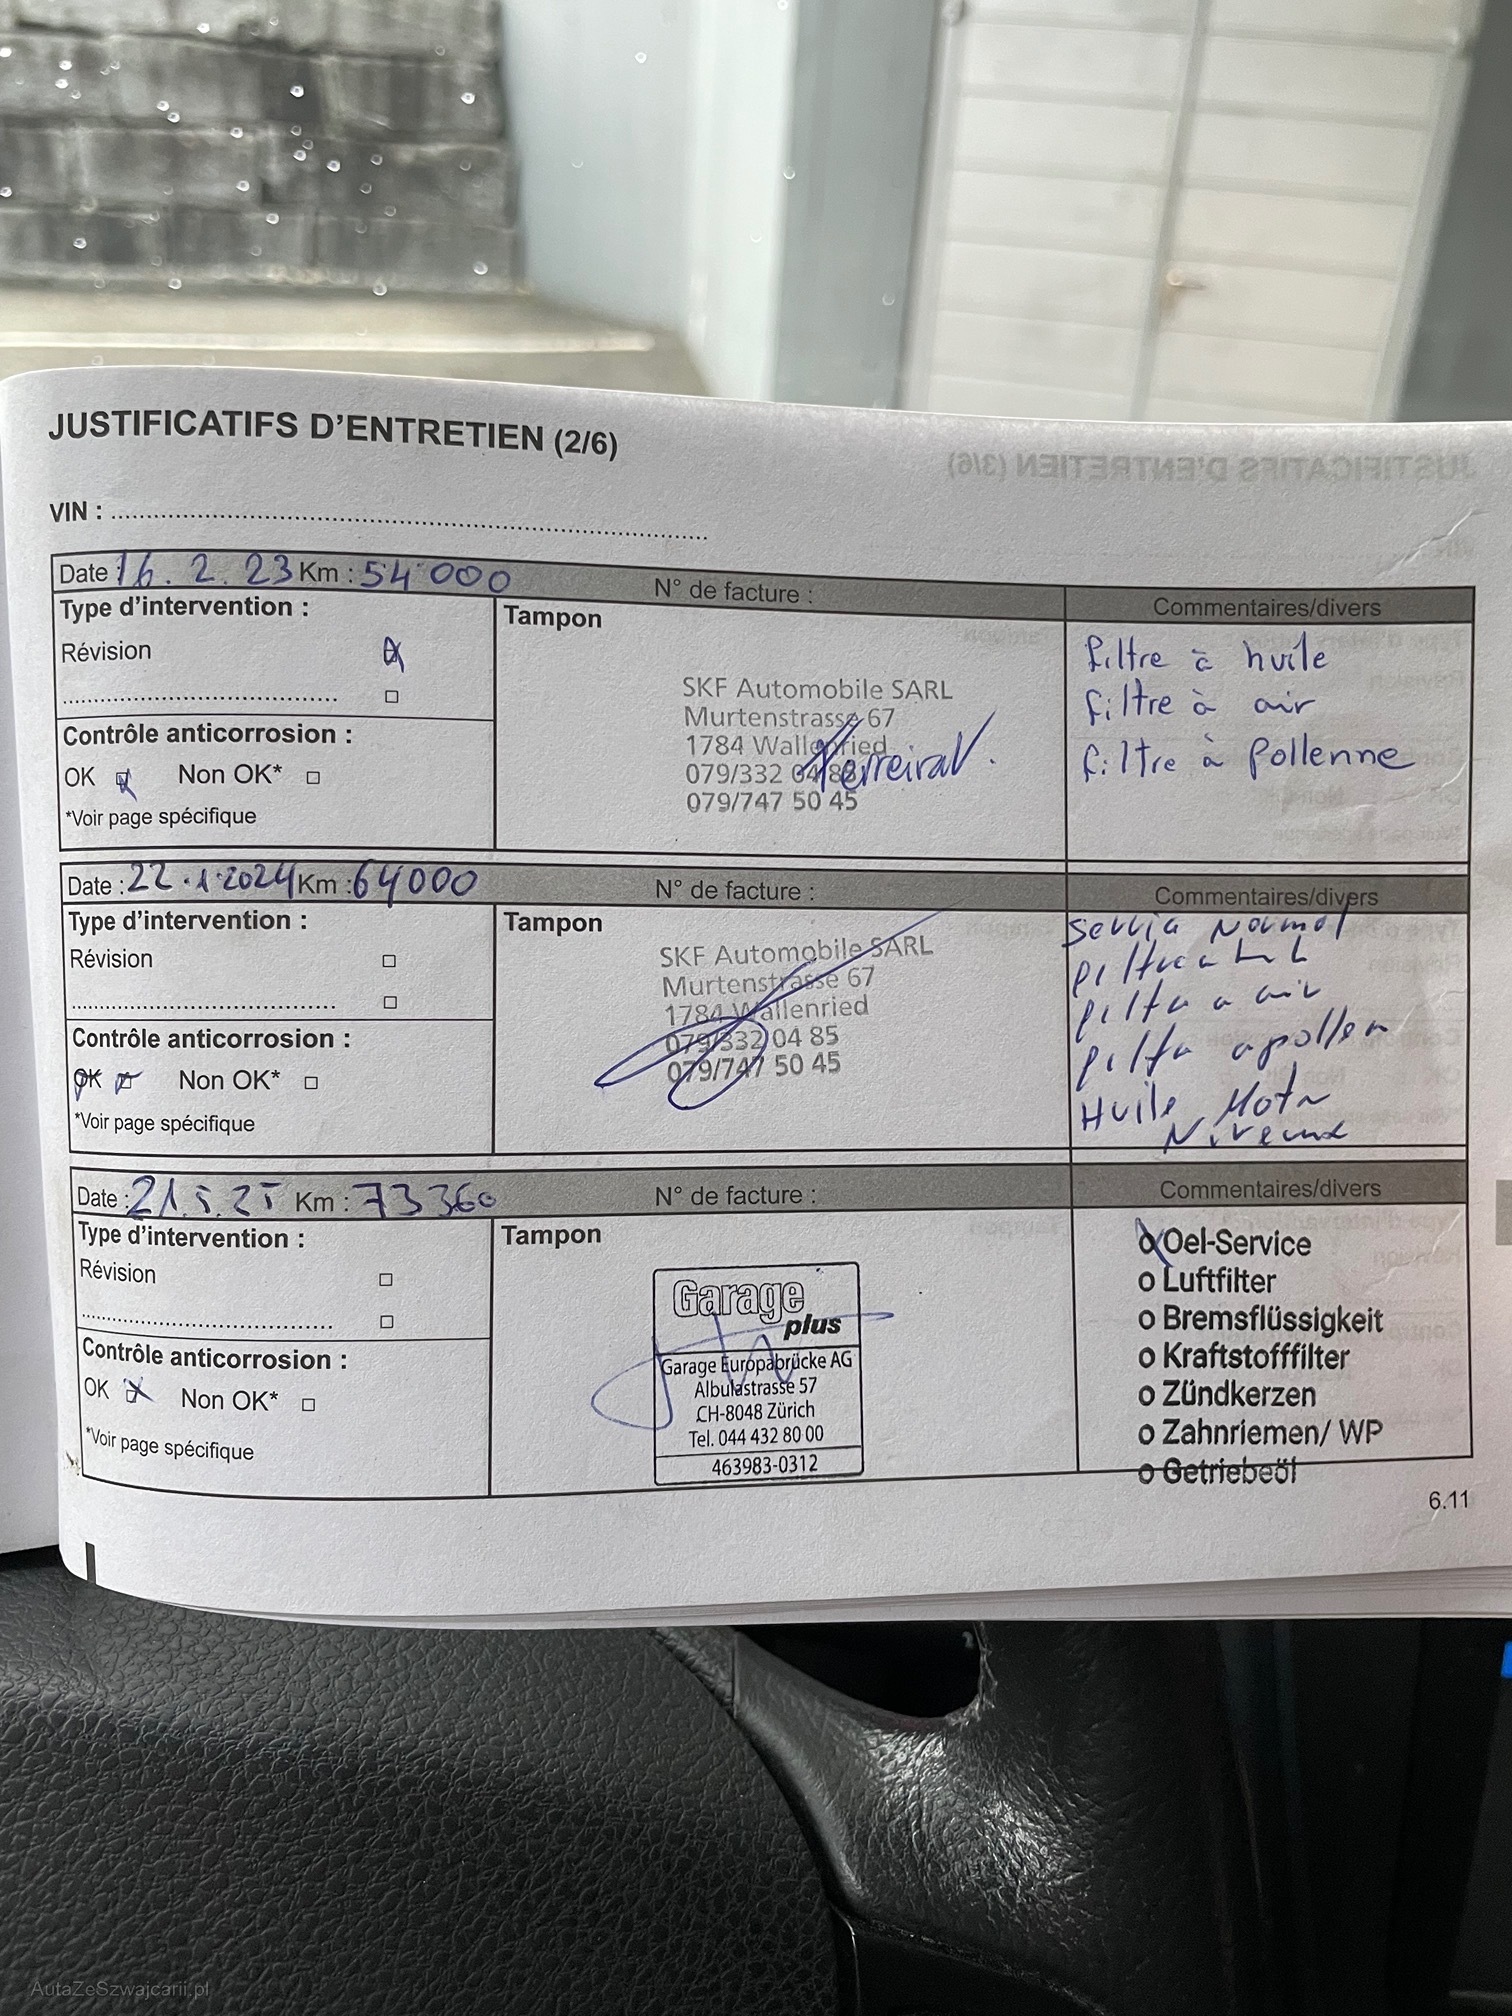 JUSTIFICATIFS D'ENTRETIEN (2/6)
JUSTIFICATIFS D'ENTRETIEN (3/6)
VIN :
Date : 16. 2. 23 Km : 54'000 N° de facture :
Commentaires/divers
Type d'intervention :
Révision
Contrôle anticorrosion :
OK Non OK*
*Voir page spécifique
Tampon
SKF Automobile SARL
Murtenstrasse 67
1784 Wallenried
079/332 04 85
079/747 50 45
filtre à huile
filtre à air
filtre à Pollenne
Date : 22.1.2024 Km : 64000 N° de facture :
Commentaires/divers
Type d'intervention :
Révision
Contrôle anticorrosion :
OK Non OK*
*Voir page spécifique
Tampon
SKF Automobile SARL
Murtenstrasse 67
1784 Wallenried
079/332 04 85
079/747 50 45
Normal
a air
a pollen
Huile
Niveaux
Date : 21.5.25 Km : 73360 N° de facture :
Commentaires/divers
Type d'intervention :
Révision
Contrôle anticorrosion :
OK Non OK*
*Voir page spécifique
Tampon
Garage
plus
Garage Europabrücke AG
Albulastrasse 57
CH-8048 Zürich
Tel. 044 432 80 00
463983-0312
o Oel-Service
o Luftfilter
o Bremsflüssigkeit
o Kraftstofffilter
o Zündkerzen
o Zahnriemen/ WP
o Getriebeöl
6.11
AutaZeSzwajcarii.pl